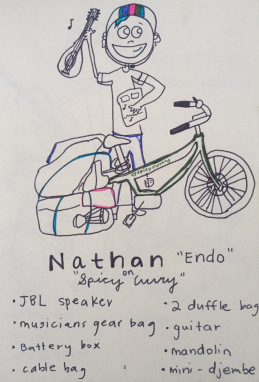 @spicycurry
Nathan "Endo"
on
"Spicy Curry"
• JBL speaker
• musicians gear bag
• Battery box
• cable bag
• 2 duffle bag
• guitar
• mandolin
• mini-djembe